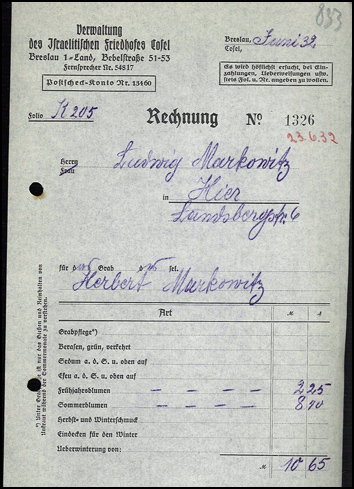 833
Verwaltung
des Israelitischen Friedhofes Cosel
Breslau 1=Land, Bebelstraße 51-53
Fernsprecher Nr. 54817
Postscheck-Konto Nr. 13460
Breslau, Juni 32
Cosel,
Es wird höflichst ersucht, bei Ein-
zahlungen, Ueberweisungen usw.
stets Fol. u. Nr. angeben zu wollen.
Folio K 205
Rechnung
No 1326
23.6.32
Herrn
Frau
Ludwig Markowitz
in Hier
Landsbergstr. 6
für d Grab d sel.
Herbert Markowitz
Art
M
Grabpflege*)
Berasen, grün, verkehrt
Sedum a. d. S. u. oben auf
Efeu a. d. S. u. oben auf
Frühjahrsblumen — — — — 2 25
Sommerblumen — — — — 8 40
Herbst- und Winterschmuck
Eindecken für den Winter
Ueberwinterung von:
M 10 65
*) Unter Grabpflege ist nur das Gießen und Reinhalten von
Unkraut während der Sommermonate zu verstehen.